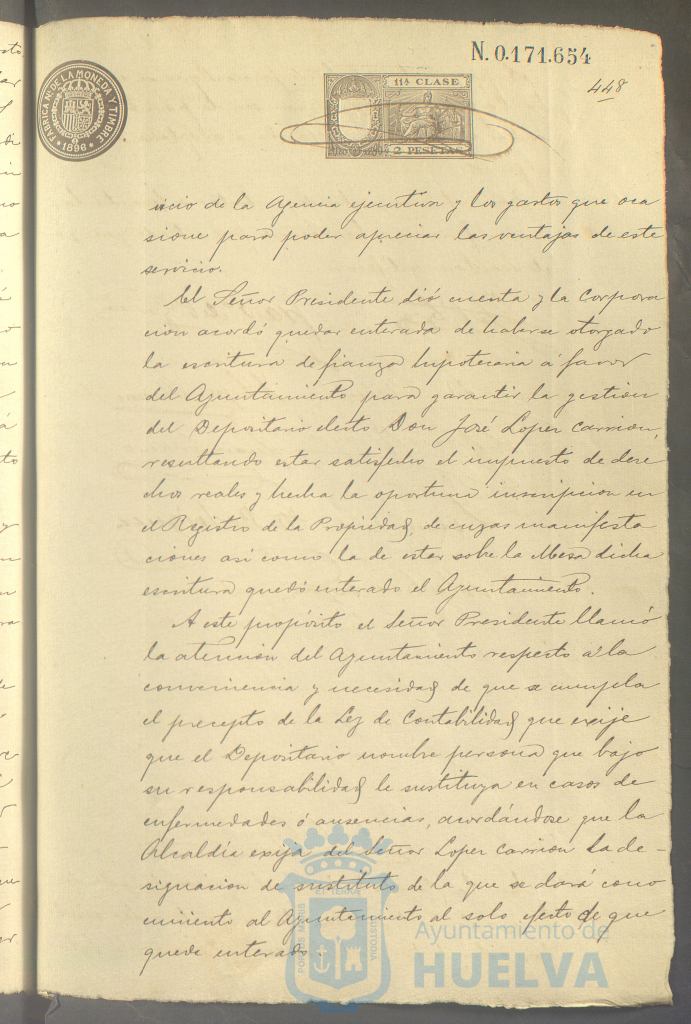 N. 0.171.654
448
FABRICA N. DE LA MONEDA Y TIMBRE
* 1896 *
11ª CLASE
2 PESETAS
vicio de la Agencia ejecutiva y los gastos que oca
sione para poder apreciar las ventajas de este
servicio.
El Señor Presidente dió cuenta y la Corpora
cion acordó quedar enterada de haberse otorgado
la escritura de fianza hipotecaria á favor
del Ayuntamiento para garantir la gestion
del Depositario electo Don José Lopez Carrion,
resultando estar satisfecho el impuesto de dere
chos reales y hecha la oportuna inscripcion en
el Registro de la Propiedad, de cuyas manifesta
ciones asi como la de estar sobre la Mesa dicha
escritura quedó enterado el Ayuntamiento.
A este propósito el Señor Presidente llamó
la atencion del Ayuntamiento respecto á la
conveniencia y necesidad de que se cumpla
el precepto de la Ley de Contabilidad que exije
que el Depositario nombre persona que bajo
su responsabilidad le sustituya en casos de
enfermedades ó ausencias, acordándose que la
Alcaldía exija del Señor Lopez Carrion la de-
signacion de sustituto de la que se dará cono
cimiento al Ayuntamiento al solo efecto de que
quede enterado.
PORTUS MARIS
ET TERRAE
CUSTODIA
Ayuntamiento de
HUELVA